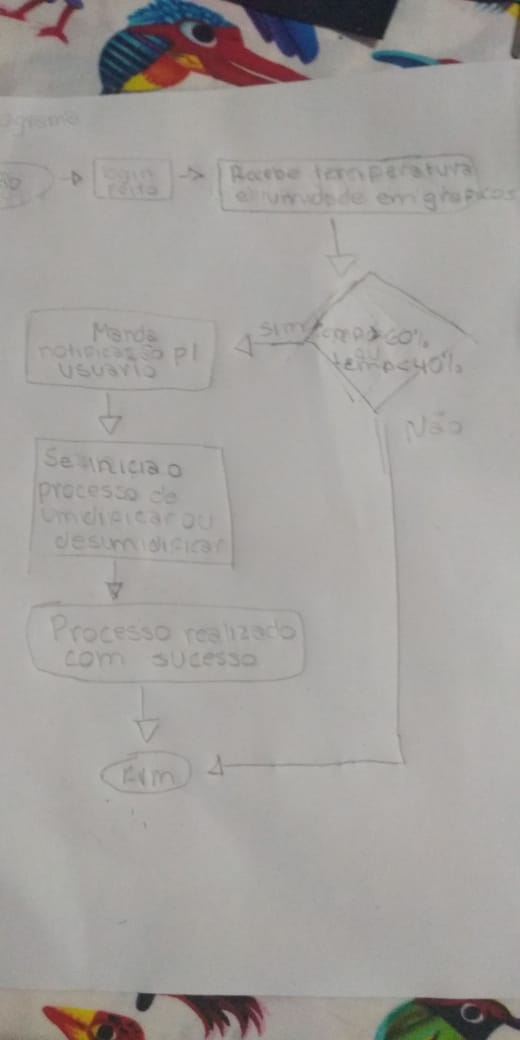 login
feito
Recebe temperatura
e umidade em gráficos
sim
temp>60%
ou
temp<40%
Não
Manda
notificação p/
usuário
Se inicia o
processo de
umidificar ou
desumidificar
Processo realizado
com sucesso
Fim